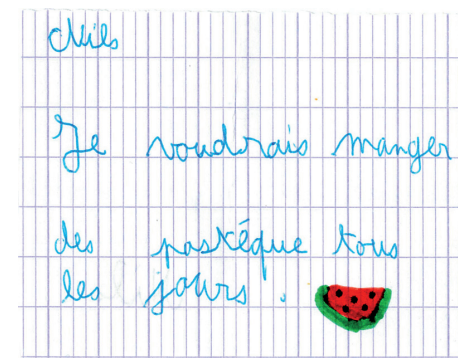 Nils
Je voudrais manger
des pastéque tous
les jours.